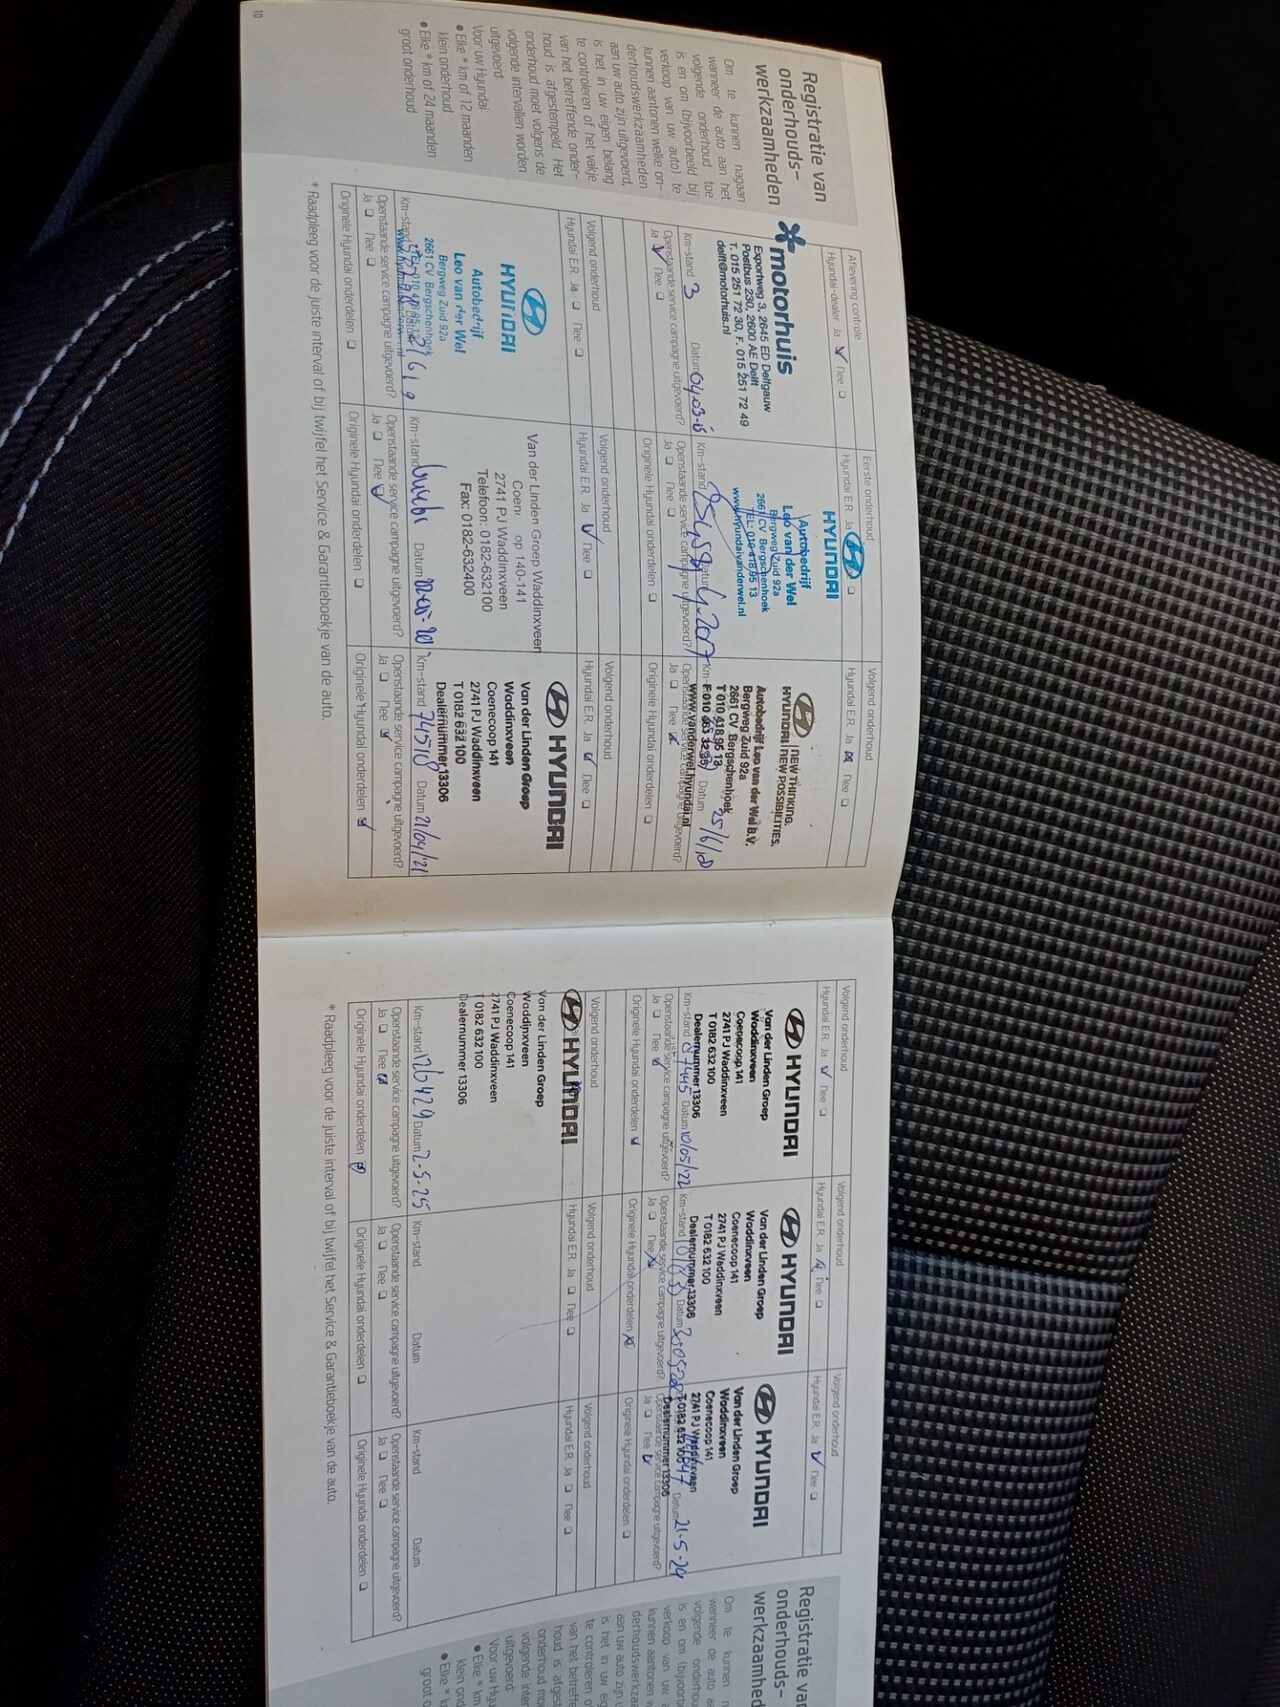 Registratie van
onderhouds-
werkzaamheden
Om te kunnen nagaan
wanneer de auto aan het
volgende onderhoud toe
is en om (bijvoorbeeld bij
verkoop van uw auto) te
kunnen aantonen welke on-
derhoudswerkzaamheden
aan uw auto zijn uitgevoerd,
is het in uw eigen belang
te controleren of het vakje
van het betreffende onder-
houd is afgestempeld. Het
onderhoud moet volgens de
volgende intervallen worden
uitgevoerd:
Voor uw Hyundai:
● Elke * km of 12 maanden
klein onderhoud
● Elke * km of 24 maanden
groot onderhoud
10
Aflevering controle
Hyundai-dealer Ja Nee
motorhuis
Exportweg 3, 2645 ED Delfgauw
Postbus 230, 2600 AE Delft
T. 015 251 72 30, F. 015 251 72 49
delft@motorhuis.nl
Km-stand 3 Datum
Openstaande service campagne uitgevoerd?
Ja Nee
Eerste onderhoud
Hyundai E.R. Ja
HYUNDAI
Autobedrijf
Leo van der Wel
Bergweg Zuid 92a
2661 CV Bergschenhoek
TEL: 010-418 95 13
www.hyundaivanderwel.nl
Km-stand Datum
Openstaande service campagne uitgevoerd?
Ja Nee
Originele Hyundai onderdelen
Volgend onderhoud
Hyundai E.R. Ja Nee
HYUNDAI
NEW THINKING.
NEW POSSIBILITIES.
Autobedrijf Leo van der Wel B.V.
Bergweg Zuid 92a
2661 CV Bergschenhoek
T 010 418 95 13
www.vanderwel.hyundai.nl
Datum 25/6/18
Openstaande service campagne uitgevoerd?
Ja Nee
Originele Hyundai onderdelen
Volgend onderhoud
Hyundai E.R. Ja Nee
HYUNDAI
Autobedrijf
Leo van der Wel
Bergweg Zuid 92a
2661 CV Bergschenhoek
Km-stand
Openstaande service campagne uitgevoerd?
Ja Nee
Originele Hyundai onderdelen
Volgend onderhoud
Hyundai E.R. Ja Nee
Van der Linden Groep Waddinxveen
op 140-141
2741 PJ Waddinxveen
Telefoon: 0182-632100
Fax: 0182-632400
Km-stand Datum
Openstaande service campagne uitgevoerd?
Ja Nee
Originele Hyundai onderdelen
Volgend onderhoud
Hyundai E.R. Ja Nee
HYUNDAI
Van der Linden Groep
Waddinxveen
Coenecoop 141
2741 PJ Waddinxveen
T 0182 632 100
Dealernummer 13306
Km-stand 74578 Datum 21/04/21
Openstaande service campagne uitgevoerd?
Ja Nee
Originele Hyundai onderdelen
* Raadpleeg voor de juiste interval of bij twijfel het Service & Garantieboekje van de auto.
Volgend onderhoud
Hyundai E.R. Ja Nee
HYUNDAI
Van der Linden Groep
Waddinxveen
Coenecoop 141
2741 PJ Waddinxveen
T 0182 632 100
Dealernummer 13306
Km-stand 87445 Datum 10/05/22
Openstaande service campagne uitgevoerd?
Ja Nee
Originele Hyundai onderdelen
Volgend onderhoud
Hyundai E.R. Ja Nee
HYUNDAI
Van der Linden Groep
Waddinxveen
Coenecoop 141
2741 PJ Waddinxveen
T 0182 632 100
Dealernummer 13306
Km-stand Datum
Openstaande service campagne uitgevoerd?
Ja Nee
Originele Hyundai onderdelen
Volgend onderhoud
Hyundai E.R. Ja Nee
HYUNDAI
Van der Linden Groep
Waddinxveen
Coenecoop 141
2741 PJ Waddinxveen
T 0182 632 100
Dealernummer 13306
Datum 21-5-24
Openstaande service campagne uitgevoerd?
Ja Nee
Originele Hyundai onderdelen
Volgend onderhoud
HYUNDAI
Van der Linden Groep
Waddinxveen
Coenecoop 141
2741 PJ Waddinxveen
T 0182 632 100
Dealernummer 13306
Km-stand 126429 Datum 2-5-25
Openstaande service campagne uitgevoerd?
Ja Nee
Originele Hyundai onderdelen
Volgend onderhoud
Hyundai E.R. Ja Nee
Km-stand Datum
Openstaande service campagne uitgevoerd?
Ja Nee
Originele Hyundai onderdelen
Volgend onderhoud
Hyundai E.R. Ja Nee
Km-stand Datum
Openstaande service campagne uitgevoerd?
Ja Nee
Originele Hyundai onderdelen
* Raadpleeg voor de juiste interval of bij twijfel het Service & Garantieboekje van de auto.
Registratie van
onderhouds-
Om te kunnen
wanneer de auto
volgende
is en om
verkoop van uw
kunnen aantonen
aan uw auto zijn
is het in uw
te controleren
van het
houd is
onderhoud
volgende
uitgevoerd:
Voor uw
● Elke *
klein
● Elke *
groot